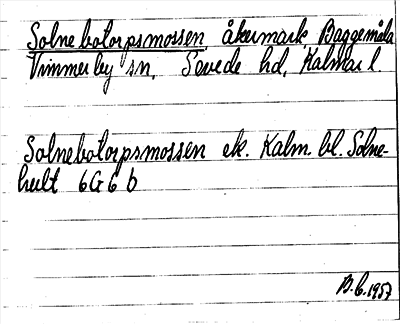 Solnebotorpsmossen, åkermark, Baggemåla
Vimmerby sn, Sevede hd, Kalmar l.
Solnebotorpsmossen ek. Kalm. bl. Solne-
hult 6G6b
B.C.1957